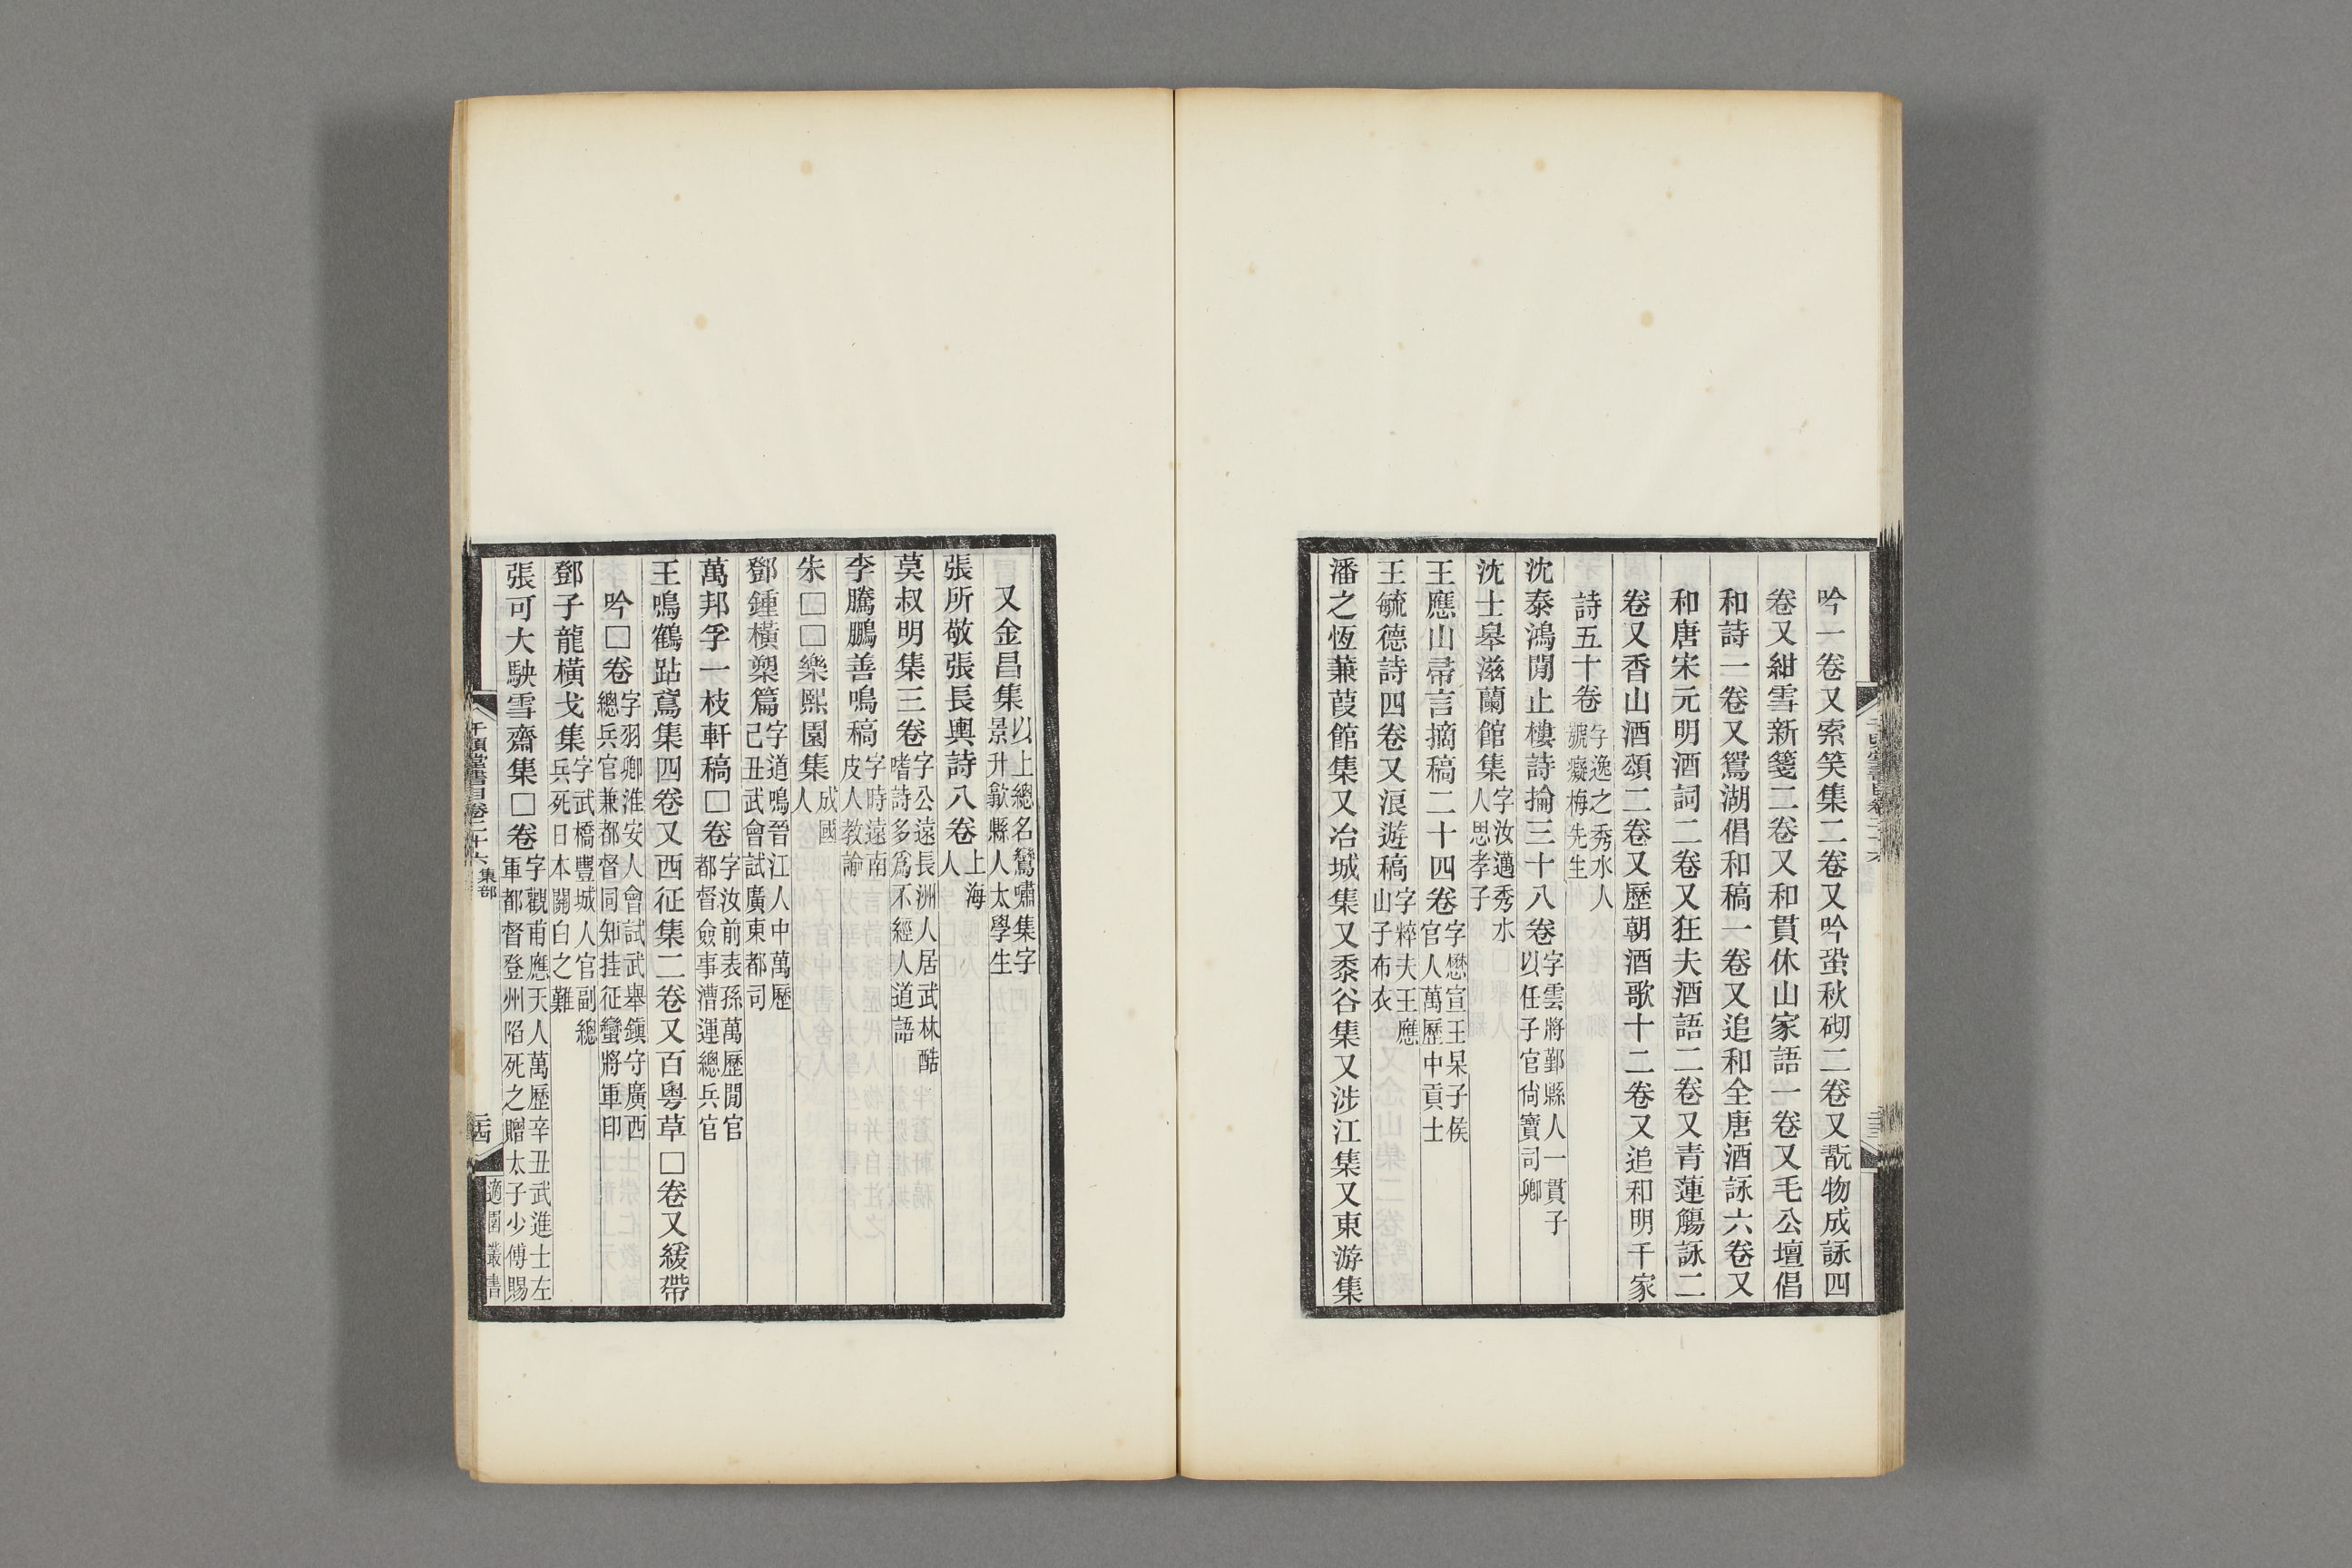 吟一卷又索笑集二卷又吟蛩秋砌二卷又翫物成詠四
卷又紺雪新箋二卷又和貫休山家語一卷又毛公壇倡
和詩二卷又鴛湖倡和稿一卷又追和全唐酒詠六卷又
和唐宋元明酒詞二卷又狂夫酒語二卷又青蓮觴詠二
卷又香山酒頌二卷又歷朝酒歌十二卷又追和明千家
詩五十卷字逸之秀水人號癡梅先生
沈泰鴻閒止樓詩掄三十八卷字雲將鄞縣人一貫子以任子官尙寶司卿
沈士皋滋蘭館集字汝邁秀水人思孝子
王應山帚言摘稿二十四卷字懋宣王杲子侯官人萬歷中貢士
王毓德詩四卷又浪遊稿字粹夫王應山子布衣
潘之恆蒹葭館集又冶城集又黍谷集又涉江集又東游集
又金昌集以上總名鸞嘯集字景升歙縣人太學生
張所敬張長輿詩八卷上海人
莫叔明集三卷字公遠長洲人居武林酷嗜詩多爲不經人道語
李騰鵬善鳴稿字時遠南皮人教諭
朱□□樂熙園集成國人
鄧鍾橫槊篇字道鳴晉江人中萬歷己丑武會試廣東都司
萬邦孚一枝軒稿□卷字汝前表孫萬歷閒官都督僉事漕運總兵官
王鳴鶴跕鳶集四卷又西征集二卷又百粵草□卷又緩帶
吟□卷字羽卿淮安人會試武舉鎭守廣西總兵官兼都督同知挂征蠻將軍印
鄧子龍橫戈集字武橋豐城人官副總兵死日本關白之難
張可大駃雪齋集□卷字觀甫應天人萬歷辛丑武進士左軍都督登州陷死之贈太子少傅賜
千頃堂書目卷二十六 集部
適園叢書